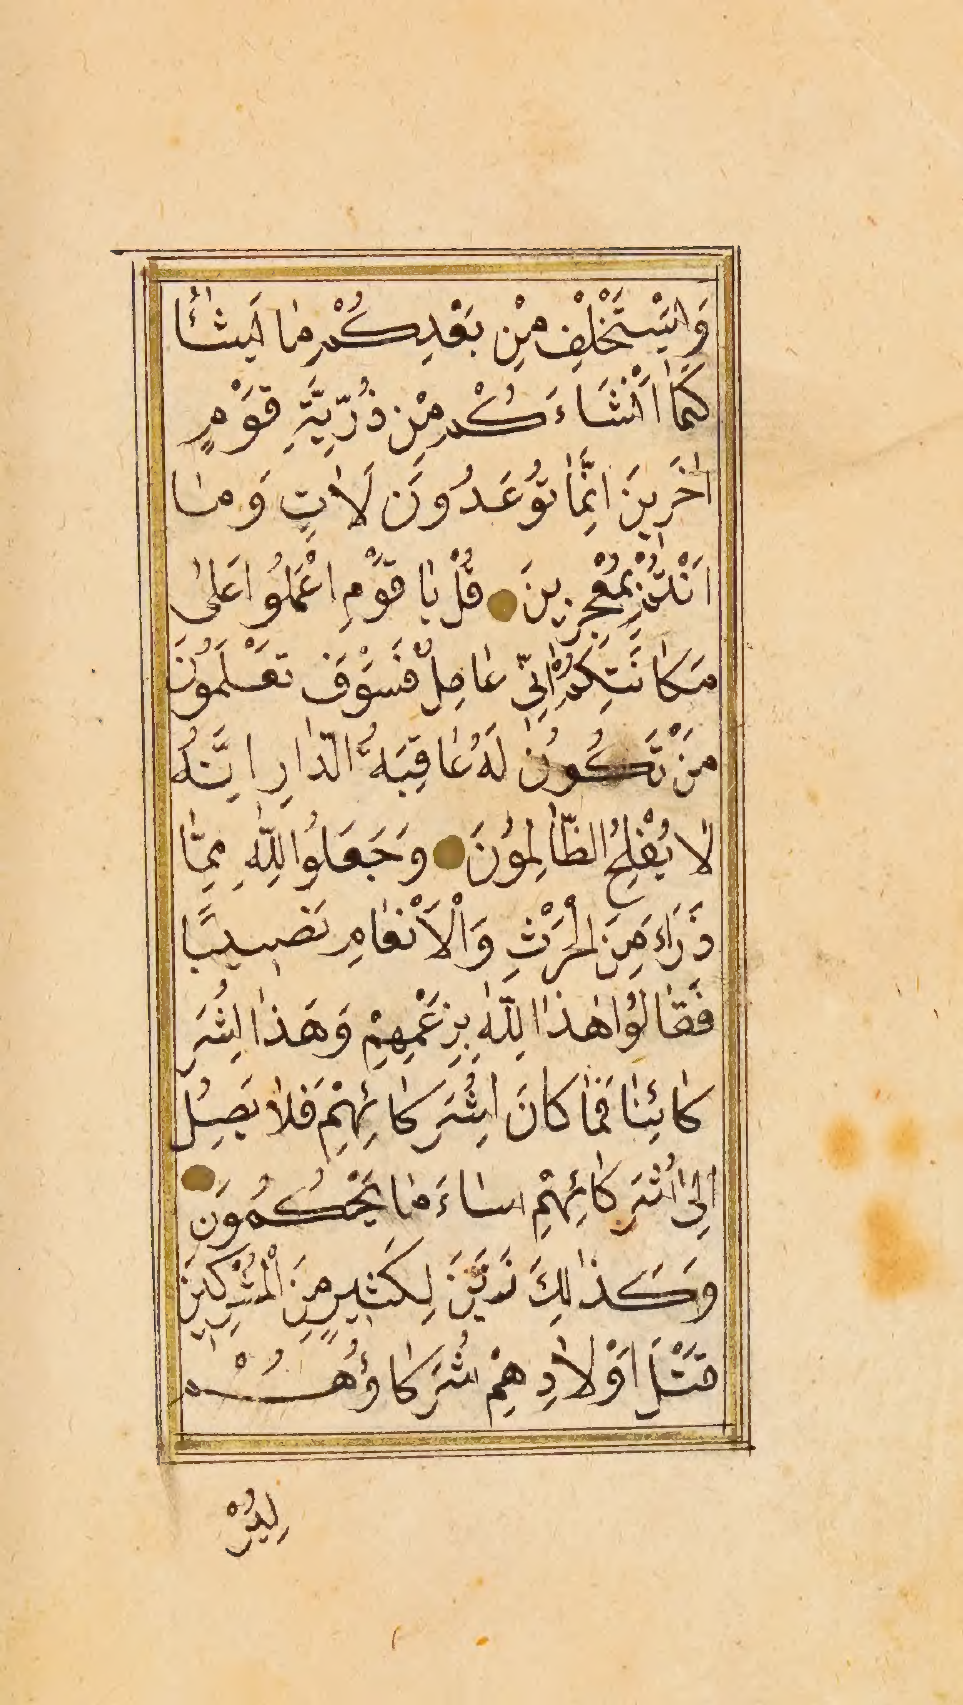 وَايَسْتَخْلِفْ مِنْ بَعْدِكُمْ مٰا اَيشٰأُ
كَمٰا اَنْشَاءَكُمْ مِنْ ذُرِّيَّةِ قَوْمٍ
اٰخَرِينَ اِنَّمٰا تُوعَدُونَ لَاٰتٍ وَمٰا
اَنْتُمْ بِمُعْجِزِينَ قُلْ يٰا قَوْمِ اعْمَلُوا عَلىٰ
مَكٰانَتِكُمْ اِنِّي عٰامِلٌ فَسَوْفَ تَعْلَمُونَ
مَنْ تَكُونُ لَهُ عٰاقِبَةُ الدّٰارِ اِنَّهُ
لٰا يُفْلِحُ الظّٰالِمُونَ وَجَعَلُوا لِلّٰهِ مِمّٰا
ذَرَاءَ مِنَ الْحَرْثِ وَالْاَنْعٰامِ نَصيبًا
فَقٰالُوا هٰذٰا لِلّٰهِ بِزَعْمِهِمْ وَهَذٰا لِشُرَ
كٰائِنٰا فَمٰا كٰانَ لِشُرَكٰائِهِمْ فَلٰا يَصِلُ
اِلىٰ شُرَكٰائِهِمْ سٰاءَ مٰا يَحْكُمُونَ
وَكَذٰلِكَ زَيَّنَ لِكَثيرٍ مِنَ الْمُشْرِكينَ
قَتْلَ اَوْلٰادِهِمْ شُرَكٰاؤُهُمْ
لِيُرْ